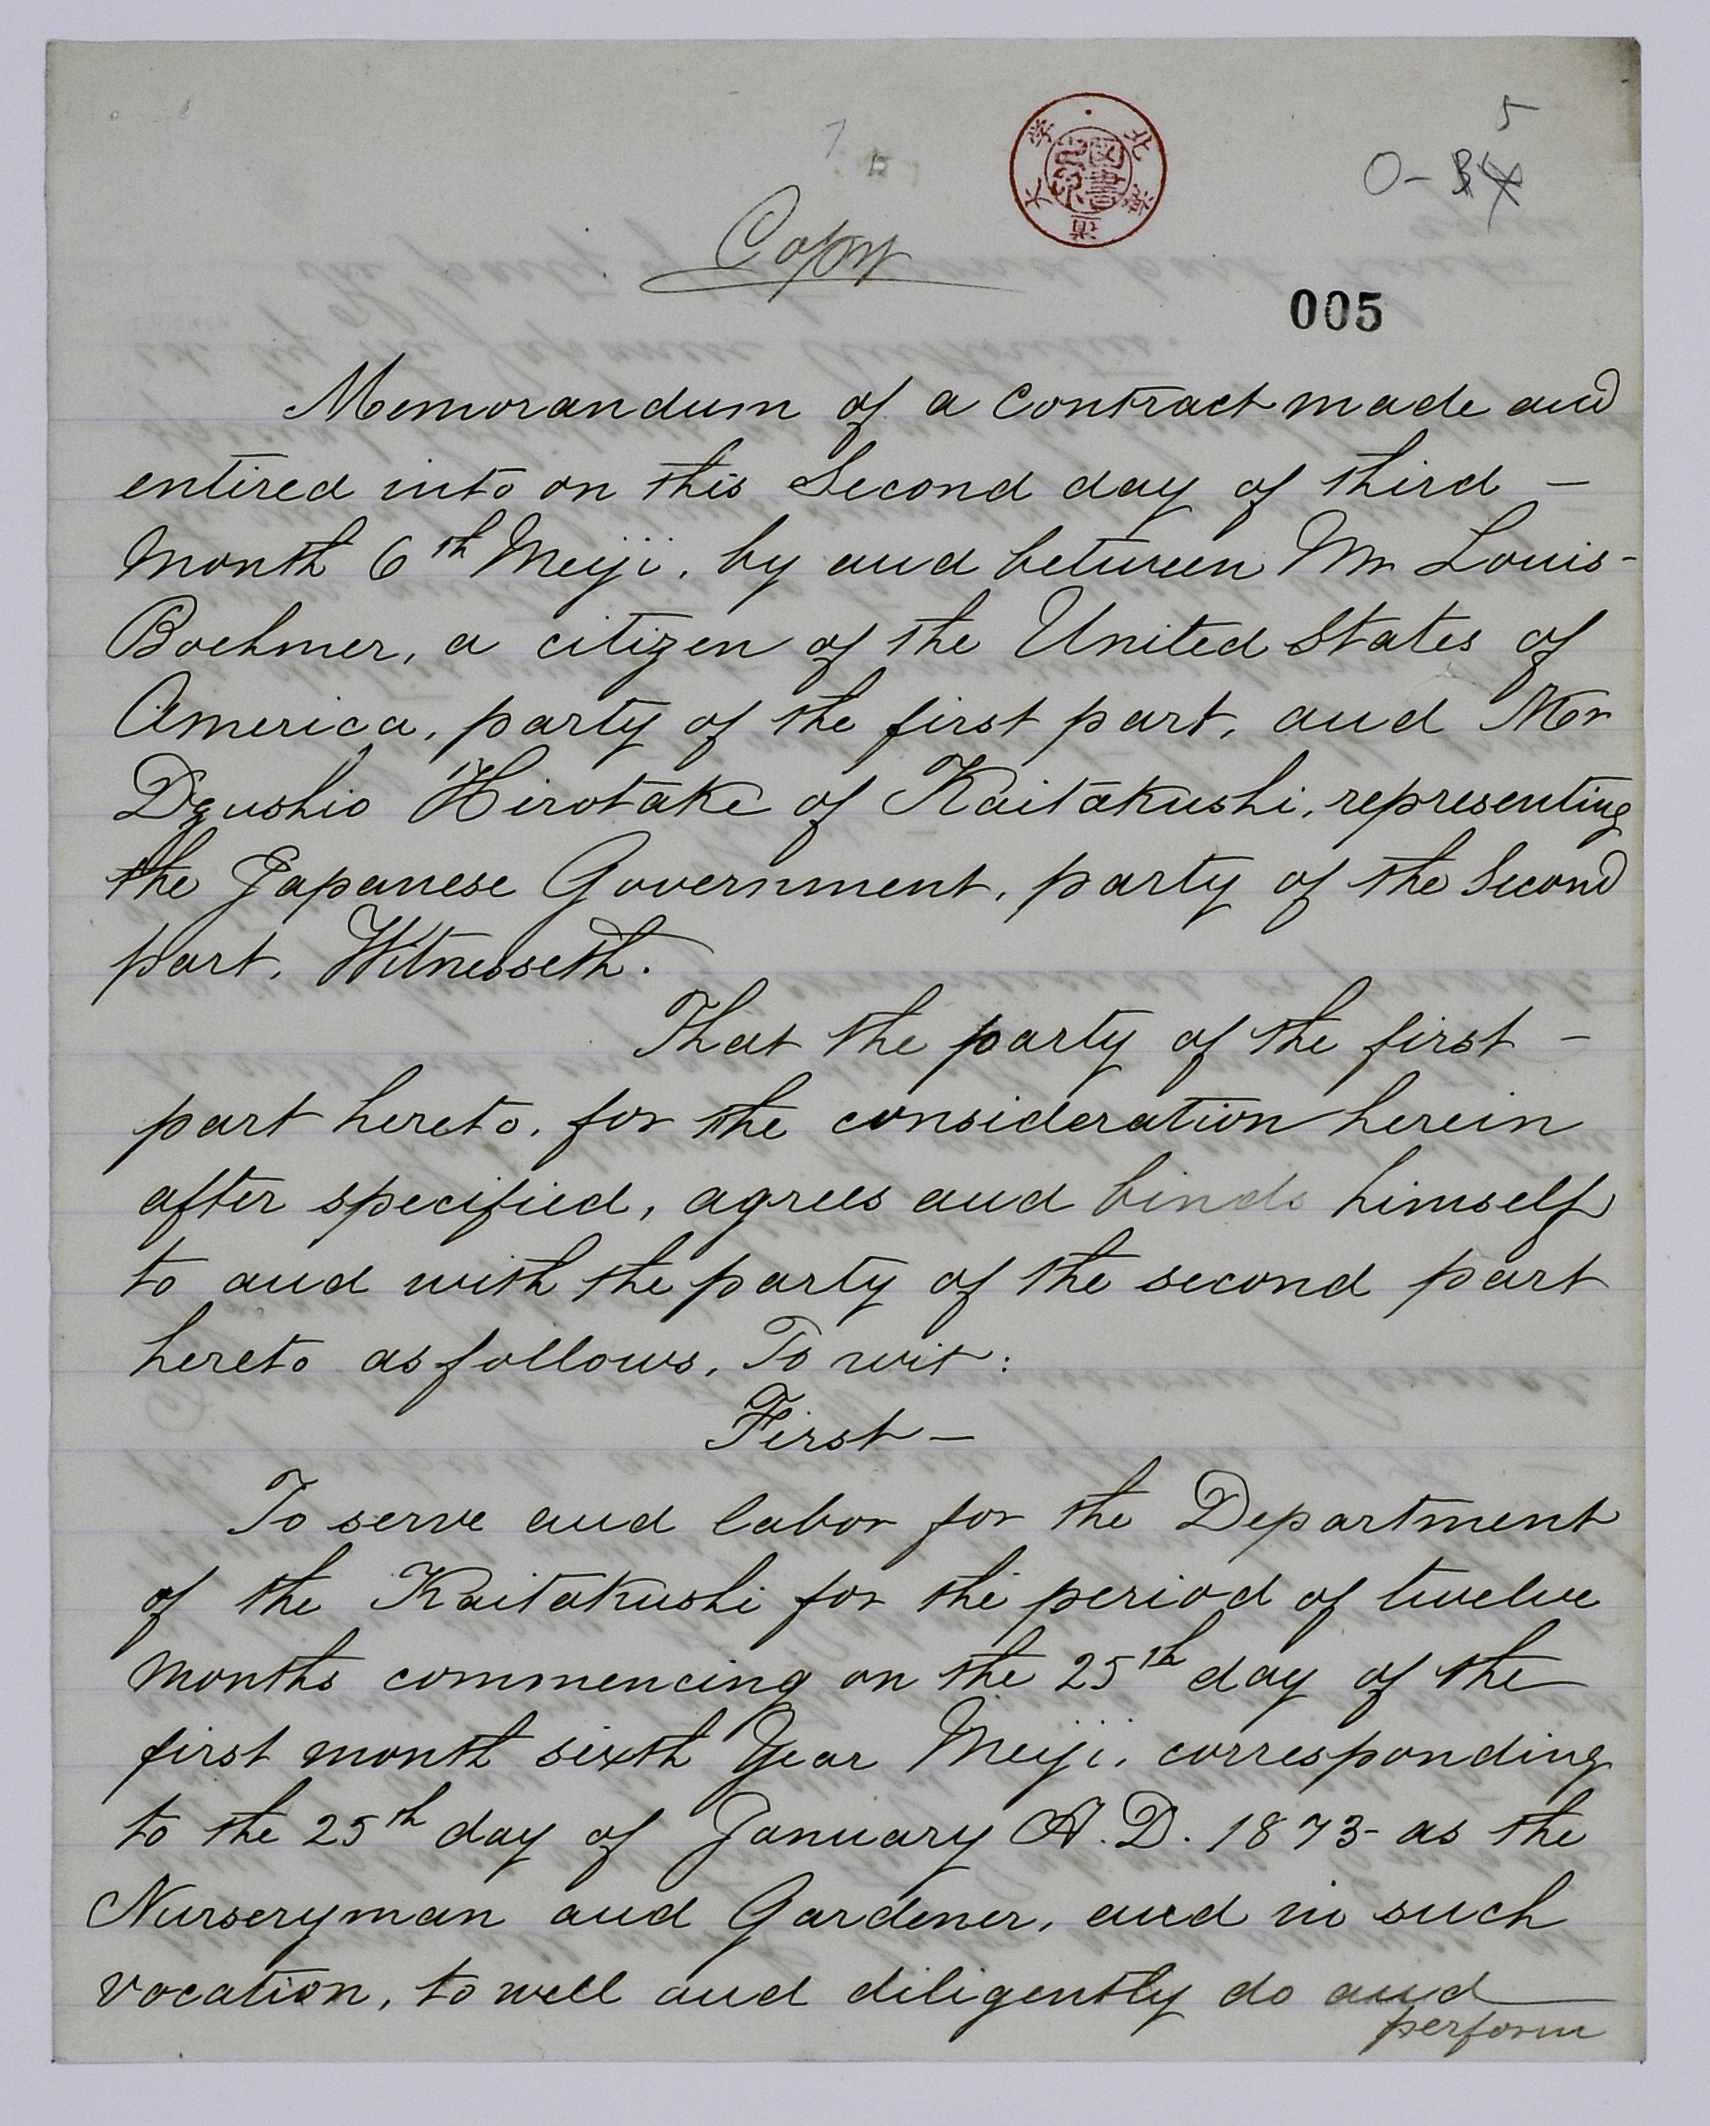 5
0-34
Copy
北海道大學
圖書之印
005
Memorandum of a Contract made and
entired into on this Second day of third –
month 6th Meiji, by and between Mr Louis-
Boehmer, a citizen of the United States of
America, party of the first part, and Mr
Dzushio Hirotake of Kaitakushi, representing
the Japanese Government, party of the Second
part, Witnesseth.
That the party of the first –
part hereto, for the consideration herein
after specified, agrees and binds himself
to and with the party of the second part
hereto as follows, To wit:
First –
To serve and labor for the Department
of the Kaitakushi for the period of twelve
months commencing on the 25th day of the
first month sixth Year Meiji, corresponding
to the 25th day of January A.D. 1873- as the
Nurseryman and Gardener, and in such
vocation, to well and diligently do and
perform